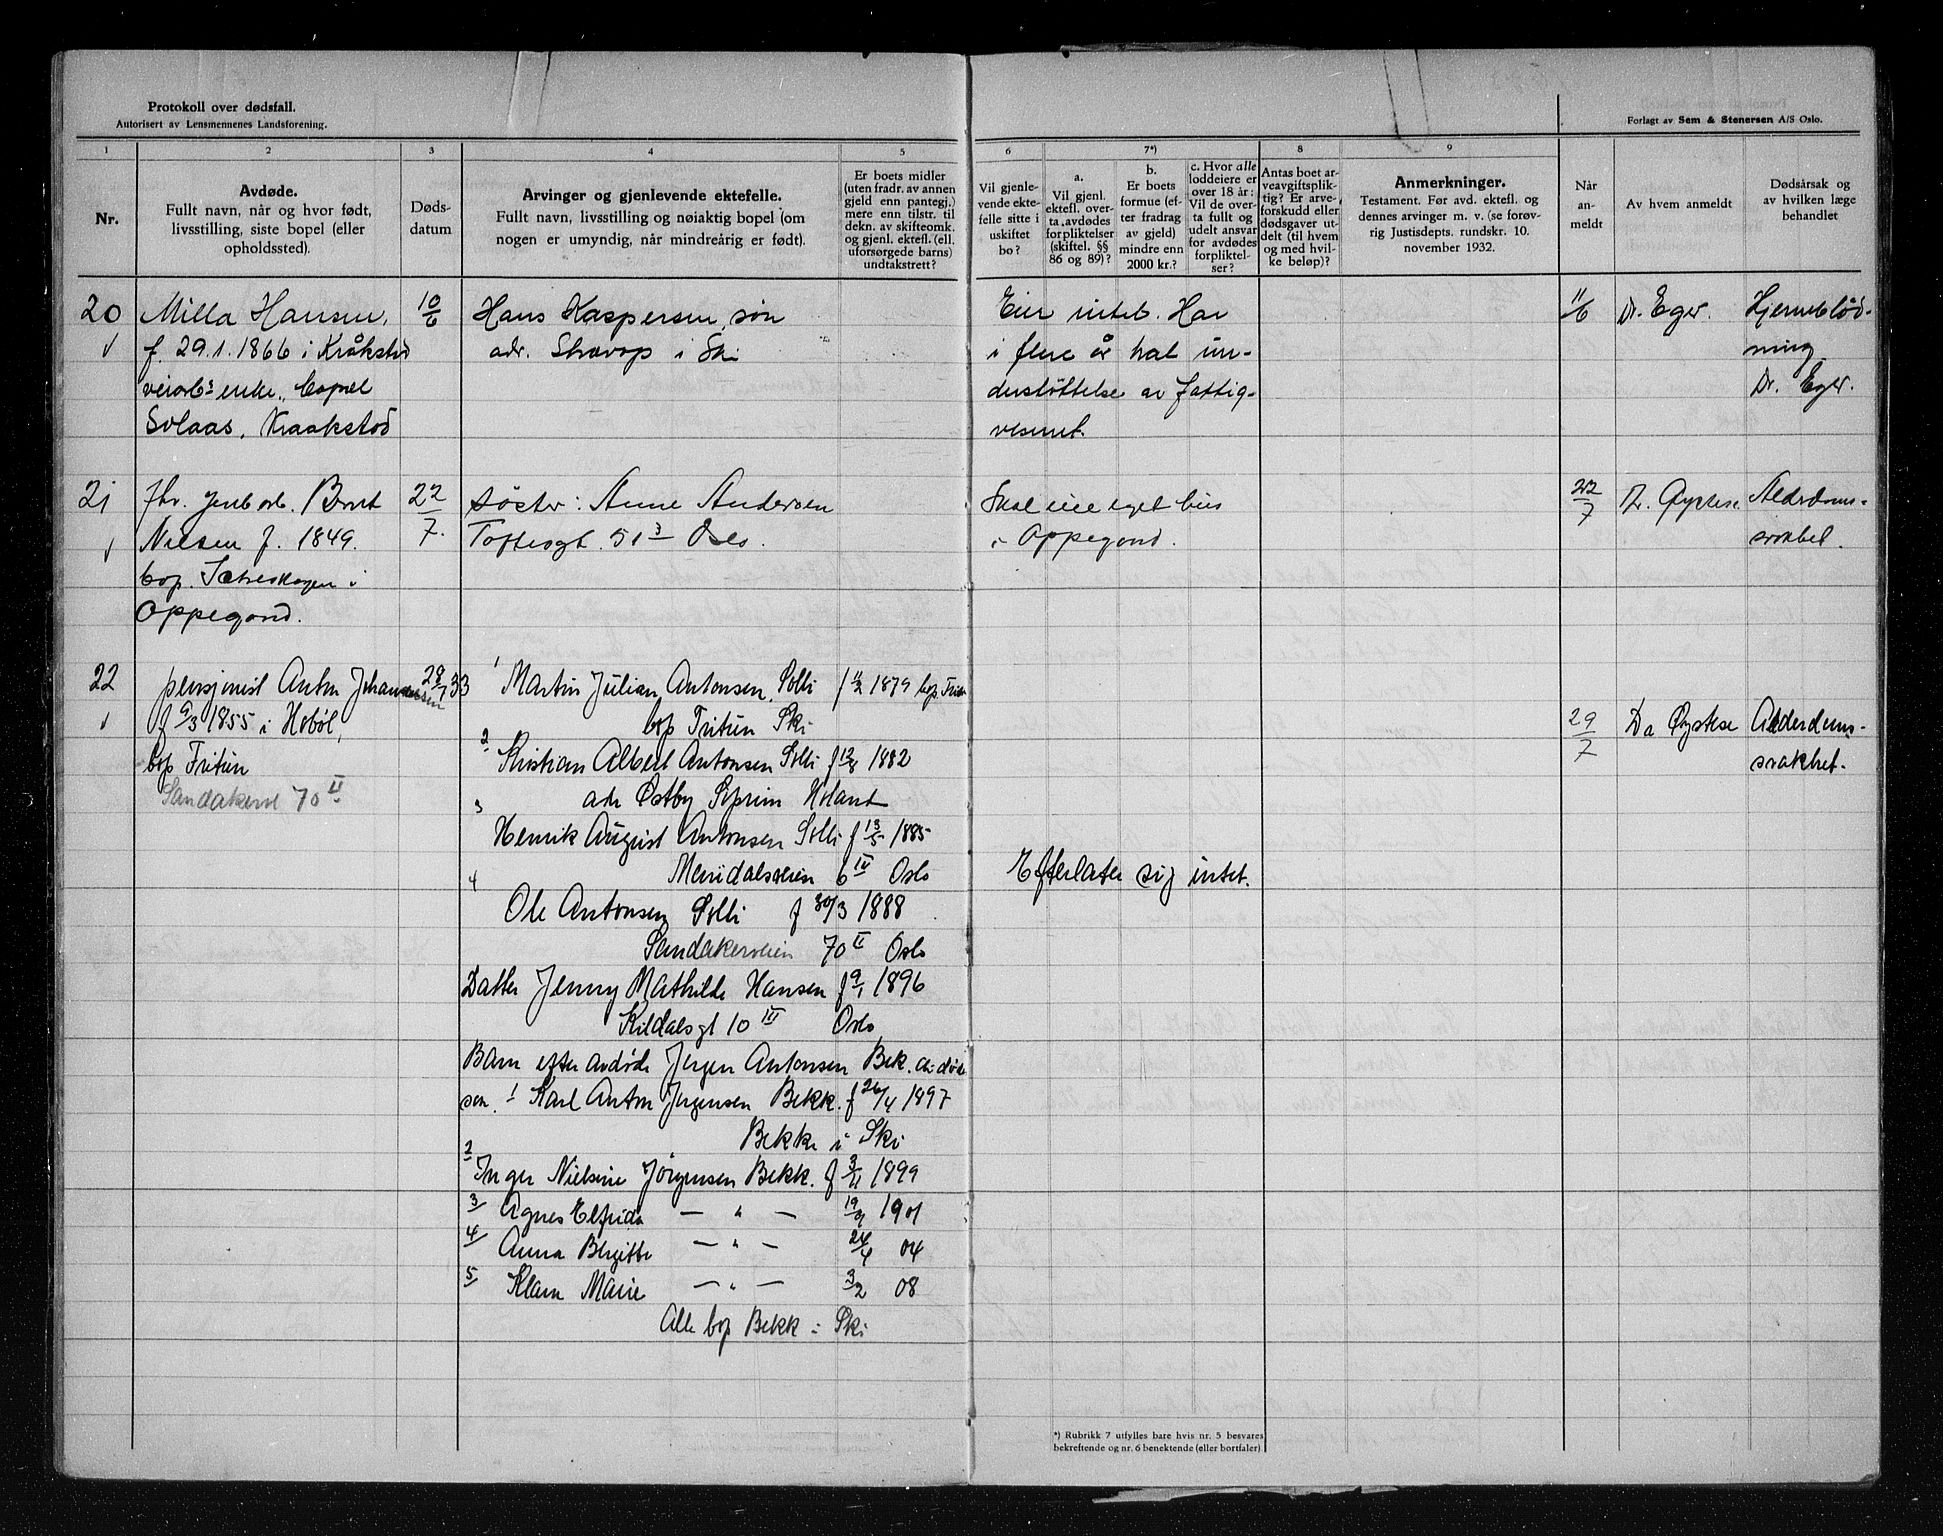 Protokoll over dødsfall.
Autorisert av Lensmennenes Landsforening.
Forlagt av Sem & Stenersen A/S Oslo.
1 2 3 4 5 6 7*) 8 9
Nr.
Avdøde.
Fullt navn, når og hvor født,
livsstilling, siste bopel (eller
opholdssted).
Døds-
datum
Arvinger og gjenlevende ektefelle.
Fullt navn, livsstilling og nøiaktig bopel (om
nogen er umyndig, når mindreårig er født).
Er boets midler
(uten fradr. av annen
gjeld enn pantegj.)
mere enn tilstr. til
dekn. av skifteomk.
og gjenl. ektef. (ell.
uforsørgede barns)
undtakstrett?
Vil gjenle-
vende ekte-
felle sitte i
uskiftet
bo?
a.
Vil gjenl.
ektefl. over-
ta avdødes
forpliktelser
(skiftel. §§
86 og 89)?
b.
Er boets
formue (ef-
ter fradrag
av gjeld)
mindre enn
2000 kr.?
c. Hvor alle
loddeiere er
over 18 år:
Vil de over-
ta fullt og
udelt ansvar
for avdødes
forpliktel-
ser?
Antas boet ar-
veavgiftsplik-
tig? Er arve-
forskudd eller
dødsgaver ut-
delt (til hvem
og med hvil-
ke beløp)?
Anmerkninger.
Testament. Før avd. ektefl. og
dennes arvinger m. v. (se forøv-
rig Justisdepts. rundskr. 10.
november 1932.
Når
an-
meldt
Av hvem anmeldt
Dødsårsak og
av hvilken læge
behandlet
20
Milla Hansen,
f 29.1.1866 i Kråkstad
veiarb.s enke, bopæl
Solaas, Kraakstad
10/6
Hans Kaspersen, søn
adr. i Ski
Eier intet. Har
i flere år hat un-
derstøttelse av fattig-
vesenet.
11/6
Dr. Eger.
Hjerneblød-
ning
Dr. Eger.
21
fhv. jernb.arb. Bernt
Nielsen f. 1849.
bop. Sætreskogen i
Oppegård.
22/7.
søster: Anne Andersen
Toftesgt. 51 3 Oslo.
Skal eie eget hus
i Oppegård.
22/7
Dr. Øystese
Alderdoms-
svakhet.
22
pensjonist Anton Johannessen
f 9/3 1855 i Hobøl,
bop Fritun
Sandakerve 70 II
29/7 33
1 Martin Julian Antonsen Solli f 11/2 1879 bop. Fritun
bop Fritun Ski
2 Kristian Albert Antonsen Solli f 12/8 1882
adr Østby Søprim Høland
3 Henrik August Antonsen Solli f 13/5 1885
Maridalsveien 6 IV Oslo
4 Ole Antonsen Solli f 30/3 1888
Sandakerveien 70 II Oslo
Datter Jenny Mathilde Hansen f 9/1 1896
Kildalsgt 10 III Oslo
Barn efter avdøde Jørgen Antonsen Bek.
søn. 1 Karl Anton Jørgensen Bekk. f 26/4 1897
Bekke i Ski
2 Inger Nielsine Jørgensen Bekk. f 3/11 1899
3 Agnes Elfrida — " — 19/9 1901
4 Anna Birgitte — " — 24/4 04
5 Klara Marie — " — 3/2 08
Alle bop Bekk i Ski
Efterlater sig intet.
29/7
Dr Øystese
Alderdoms-
svakhet.
*) Rubrikk 7 utfylles bare hvis nr. 5 besvares
bekreftende og nr. 6 benektende (eller bortfaler)